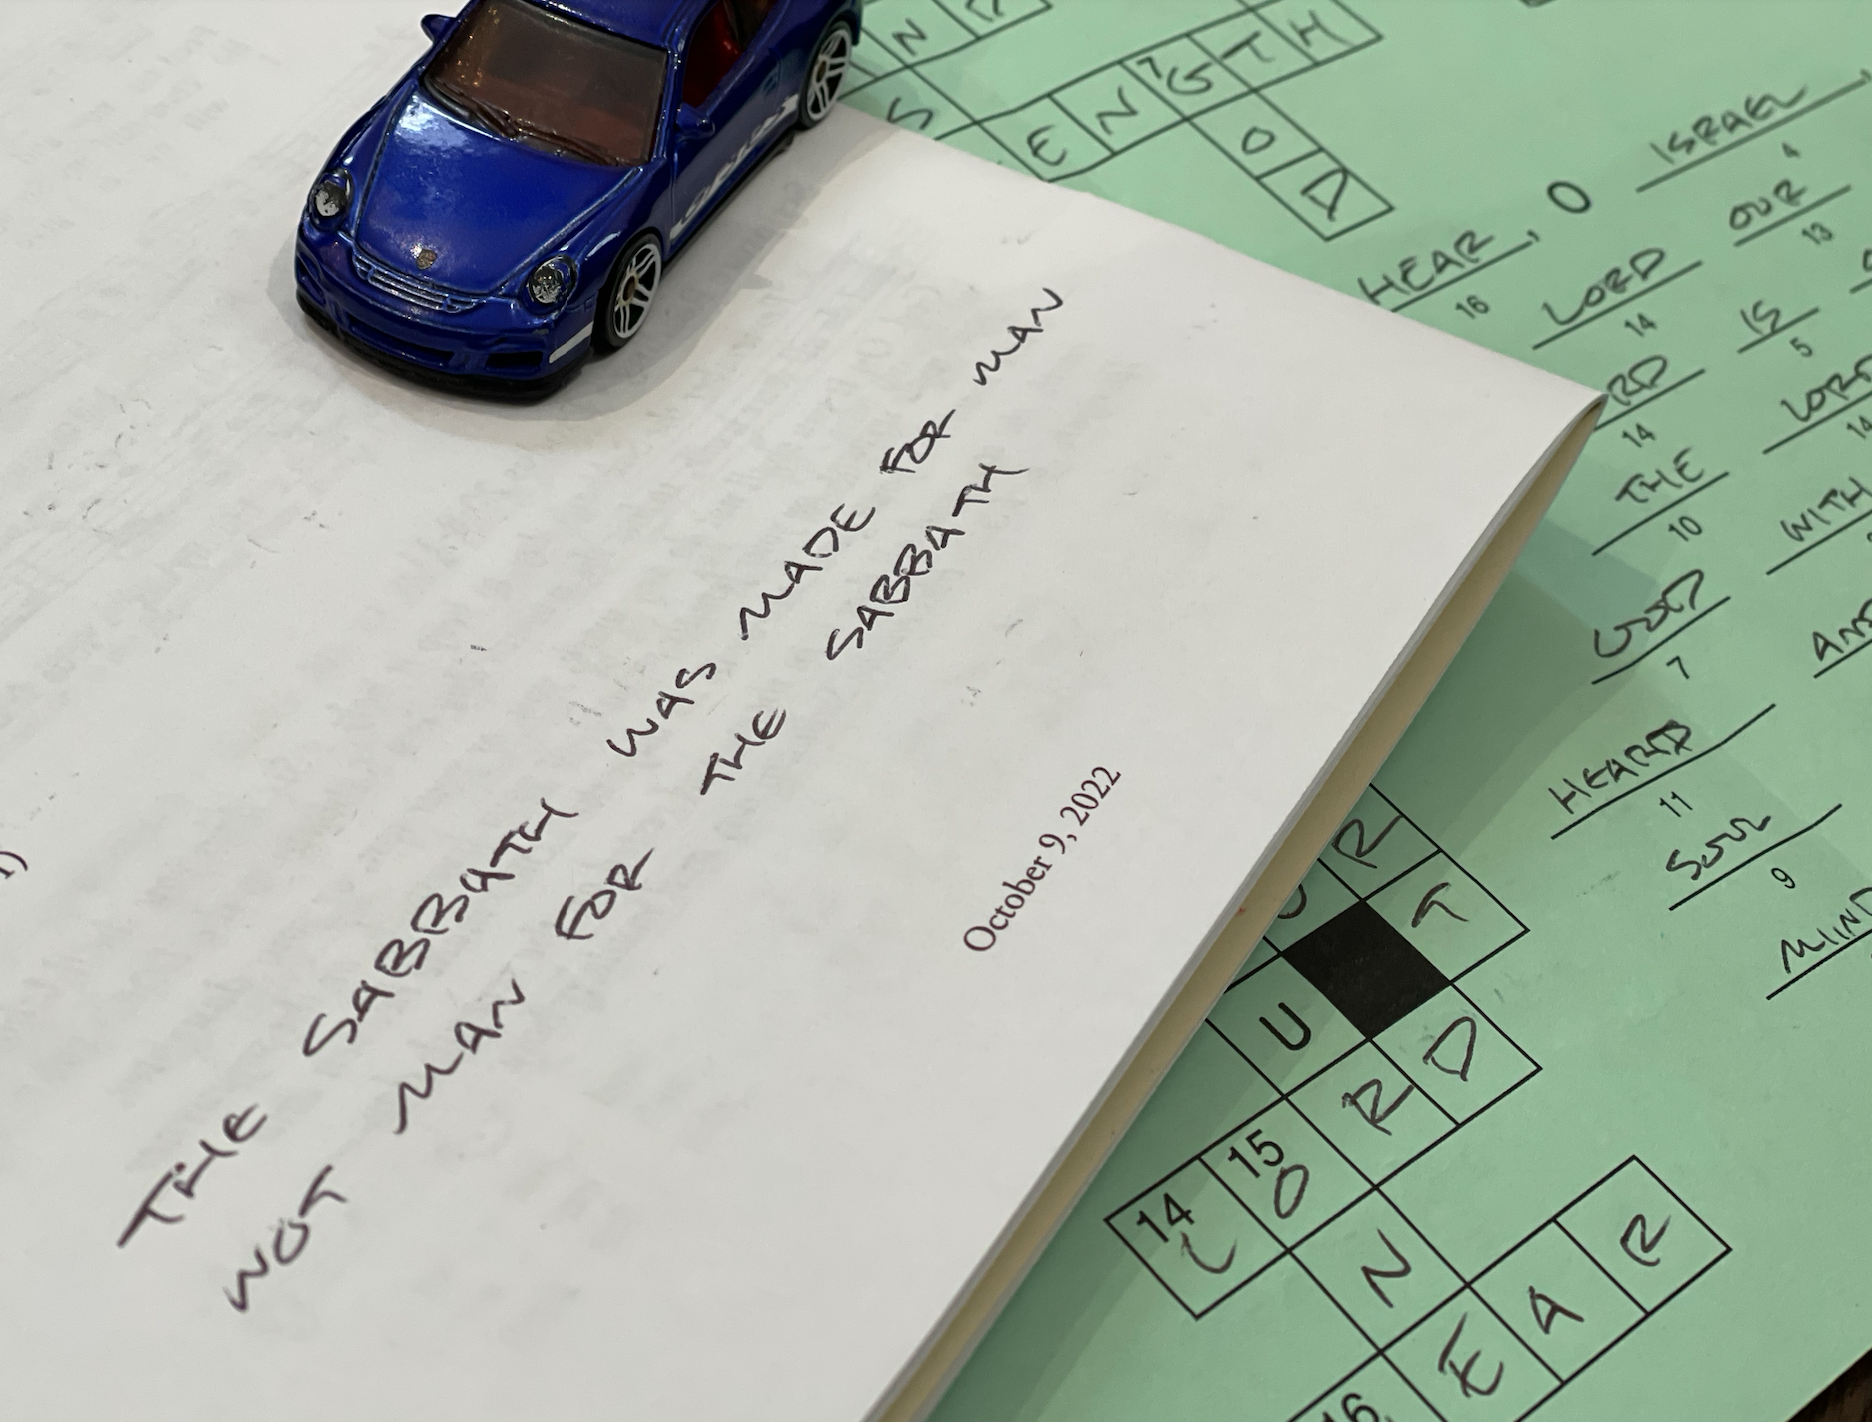 THE SABBATH WAS MADE FOR MAN
NOT MAN FOR THE SABBATH
October 9, 2022
HEAR, O ISRAEL,
16 4
LORD OUR
14 13
RD IS
14 5
THE LORD
10 14
GOD WITH
7
HEARD
11
SOUL
9
MIIND
N
S
E N 7 G T H
O
D
R
T
U
R D
14 L 15 O
N
16
E A R